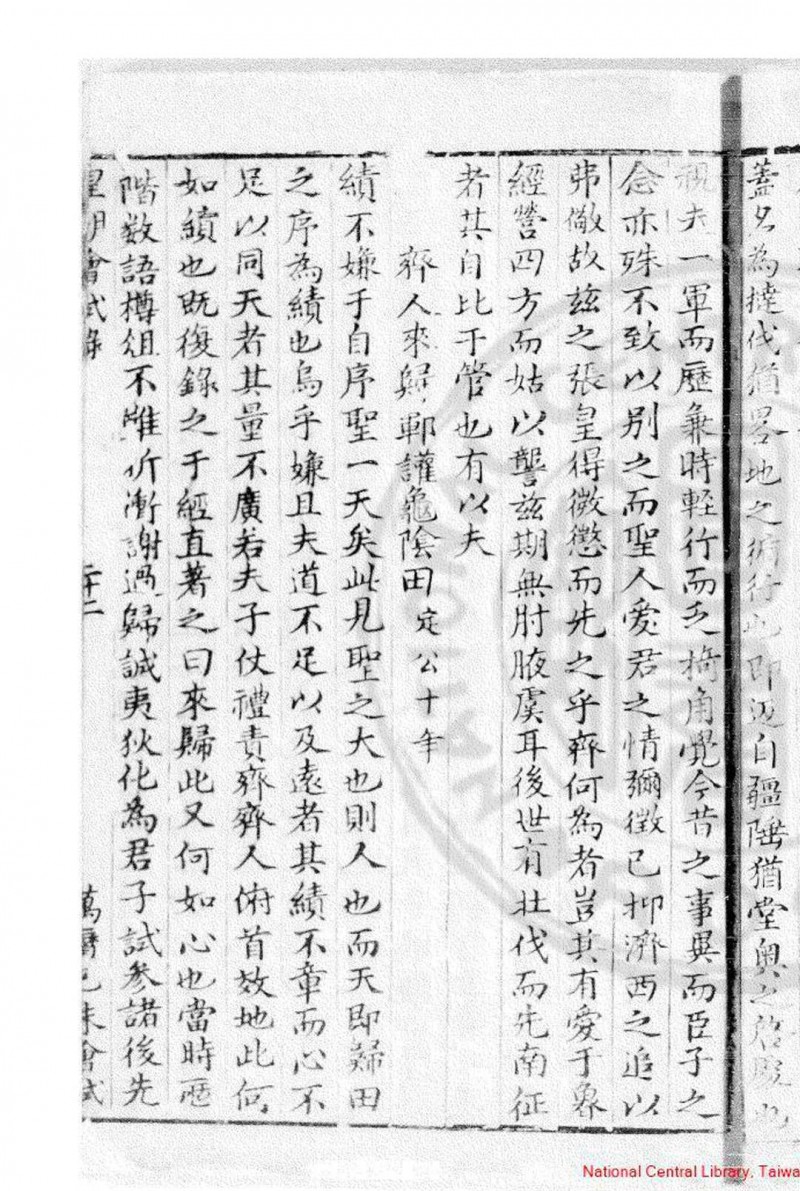 蓋名為撻伐猶畧地之術行也即迩自疆陲猶堂奧之啓
視夫一軍而歷兼時輕行而乏掎角覺今昔之事異而臣子之
念亦殊不致以别之而聖人愛君之情彌徵已抑濟西之追以
弗儆故兹之張皇得微懲而先之乎齊何為者豈其有愛于
經營四方而姑以讋兹期無肘腋虞耳後世有壯伐而先南征
者其自比于管也有以夫
齊人來歸鄆讙龜陰田 定公十年
績不嫌于自序聖一天矣此見聖之大也則人也而天即歸田
之序為績也烏乎嫌且夫道不足以及遠者其績不章而心不
足以同天者其量不廣若夫子仗禮責齊齊人俯首效地此何
如績也既復錄之于經直著之曰來歸此又何如心也當時
階數語樽俎不雎忻漸謝過歸誠夷狄化為君子試參諸後先
皇明會試錄 二十二 萬曆己未會試
National Central Library, Taiwa